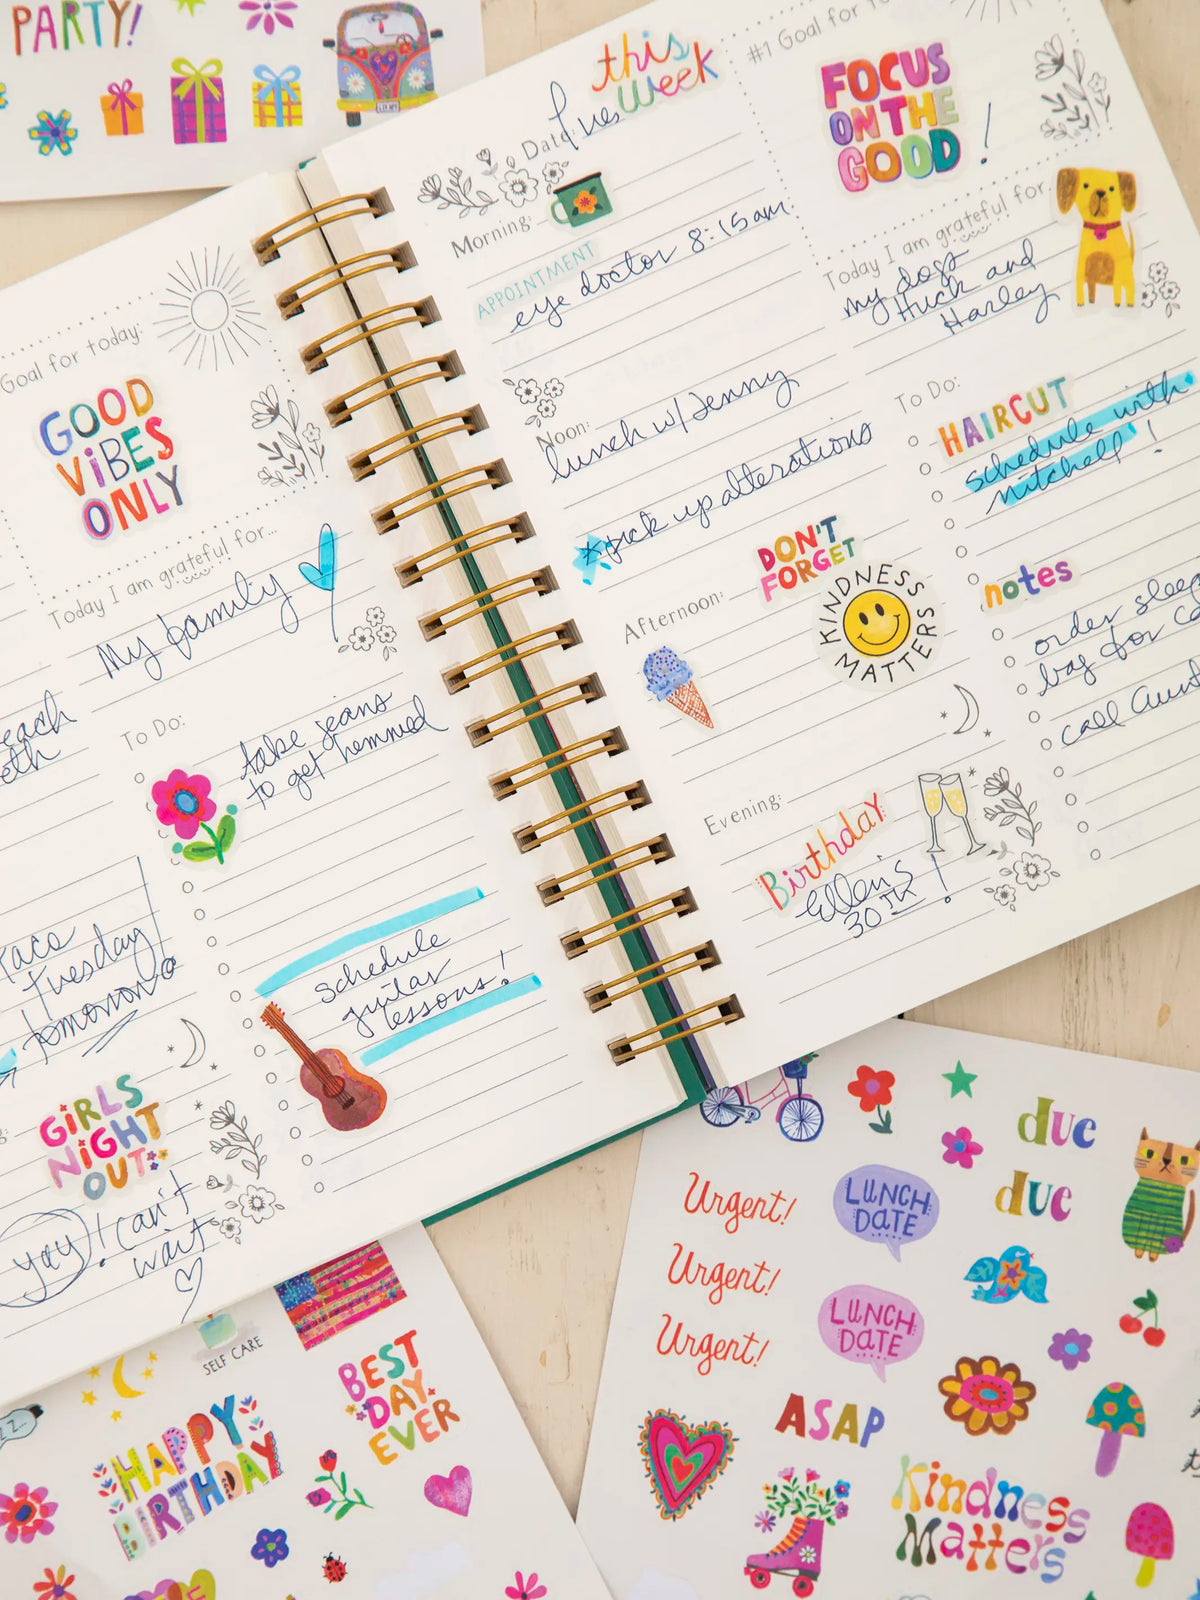 PARTY!
Goal for today:
GOOD
VIBES
ONLY
Today I am grateful for...
My family
To Do:
take jeans
to get hemmed
Tuesday
tomorrow
schedule
guitar
lessons!
GIRLS
NIGHT
OUT
yay! Can't
wait
this
week
Date: Tues
Morning:
APPOINTMENT
eye doctor 8:15 am
Noon:
lunch w/ Jenny
*pick up alterations
Afternoon:
DON'T
FORGET
KINDNESS
MATTERS
Evening:
Birthday
Ellen's
30th!
#1 Goal for
FOCUS
ON THE
GOOD!
Today I am grateful for...
my dogs
Huck and
Harley
To Do:
HAIRCUT
schedule with
Mitchell!
notes
order
bag for
call Aunt
SELF CARE
HAPPY
BIRTHDAY
BEST
DAY
EVER
due
due
Urgent!
Urgent!
Urgent!
LUNCH
DATE
LUNCH
DATE
ASAP
Kindness
Matters